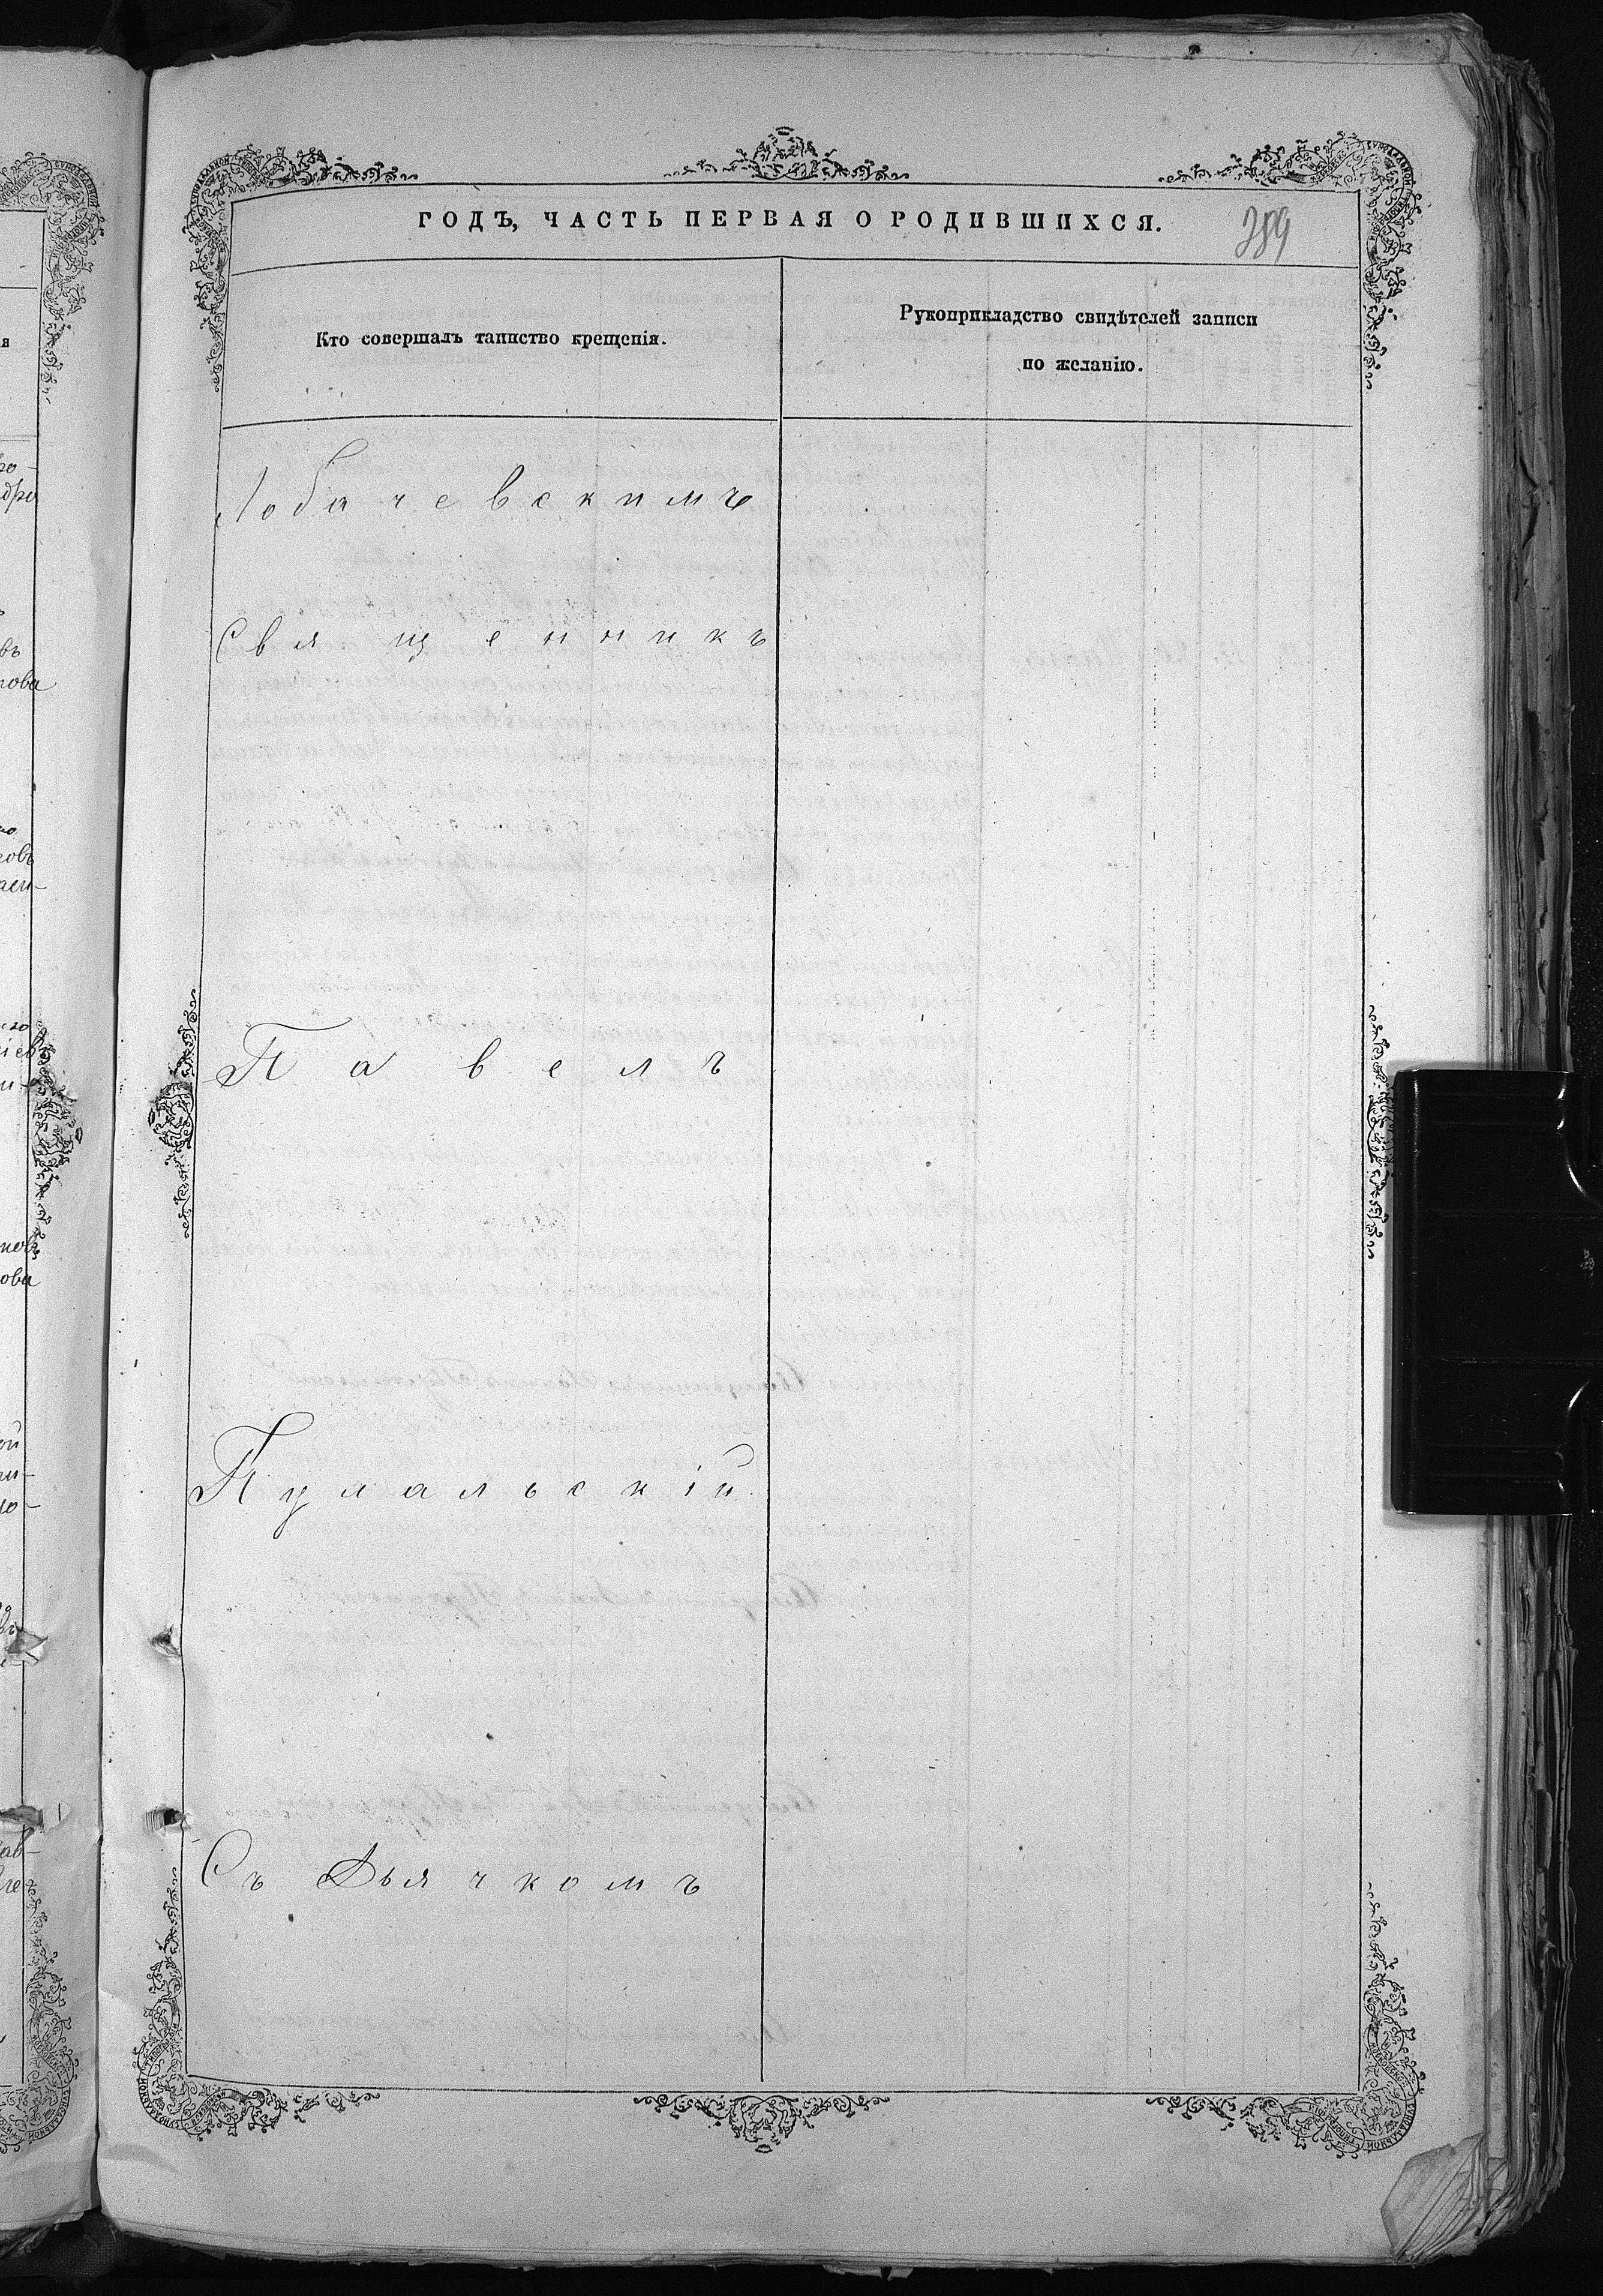 ГОДЪ, ЧАСТЬ ПЕРВАЯ О РОДИВШИХСЯ.
389
Кто совершалъ таинство крещенія.
Рукоприкладство свидѣтелей записи
по желанію.
Лобачевскимъ
Священникъ
Павелъ
Съ Дьячкомъ